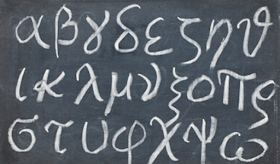 αβγδεζηθ
ικλμνξοπς
στυφχψω